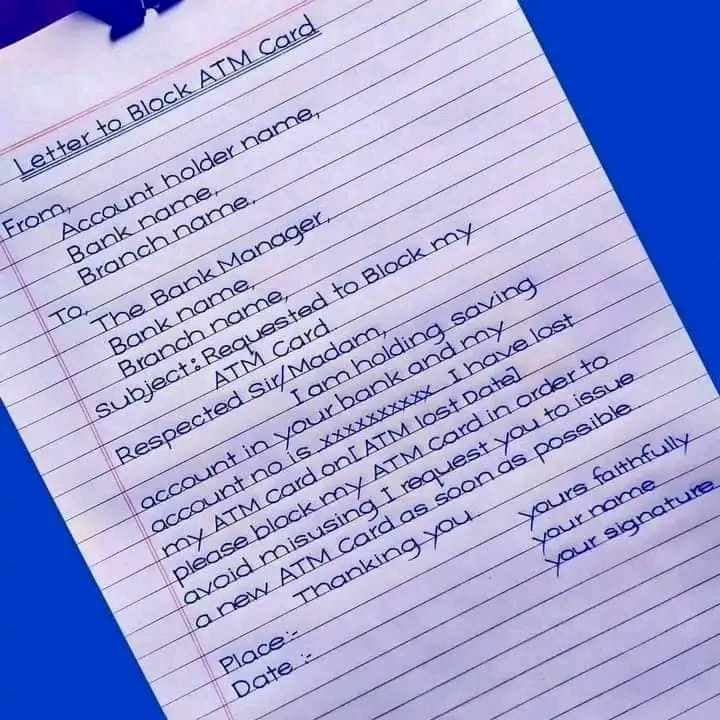 Letter to Block ATM Card
From,
Account holder name,
Bank name,
Branch name,
To,
The Bank Manager,
Bank name,
Branch name,
subject: Requested to Block my
ATM Card.
Respected Sir/Madam,
I am holding saving
account in your bank and my
account no is xxxxxxxxxx I have lost
my ATM Card on[ATM lost Date]
please block my ATM Card in order to
avoid misusing I request you to issue
a new ATM Card as soon as possible
Thanking you
yours faithfully
your name
your signature
Place:-
Date :-